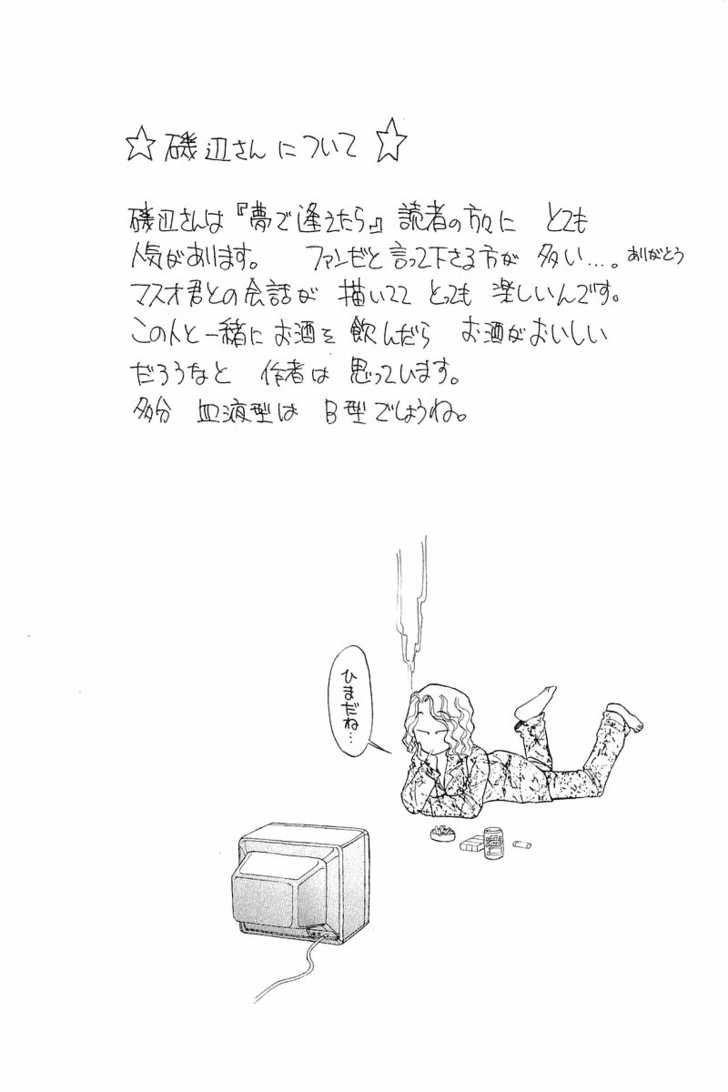 ☆ 磯辺さんについて ☆
磯辺さんは『夢で逢えたら』読者の方々に とても
人気があります。 ファンだと言って下さる方が 多い…。ありがとう
マスオ君との会話が 描いてて とっても 楽しいんです。
この人と一緒に お酒を 飲んだら お酒がおいしい
だろうなと 作者は 思っています。
多分 血液型は B型でしょうね。
ひまだね…